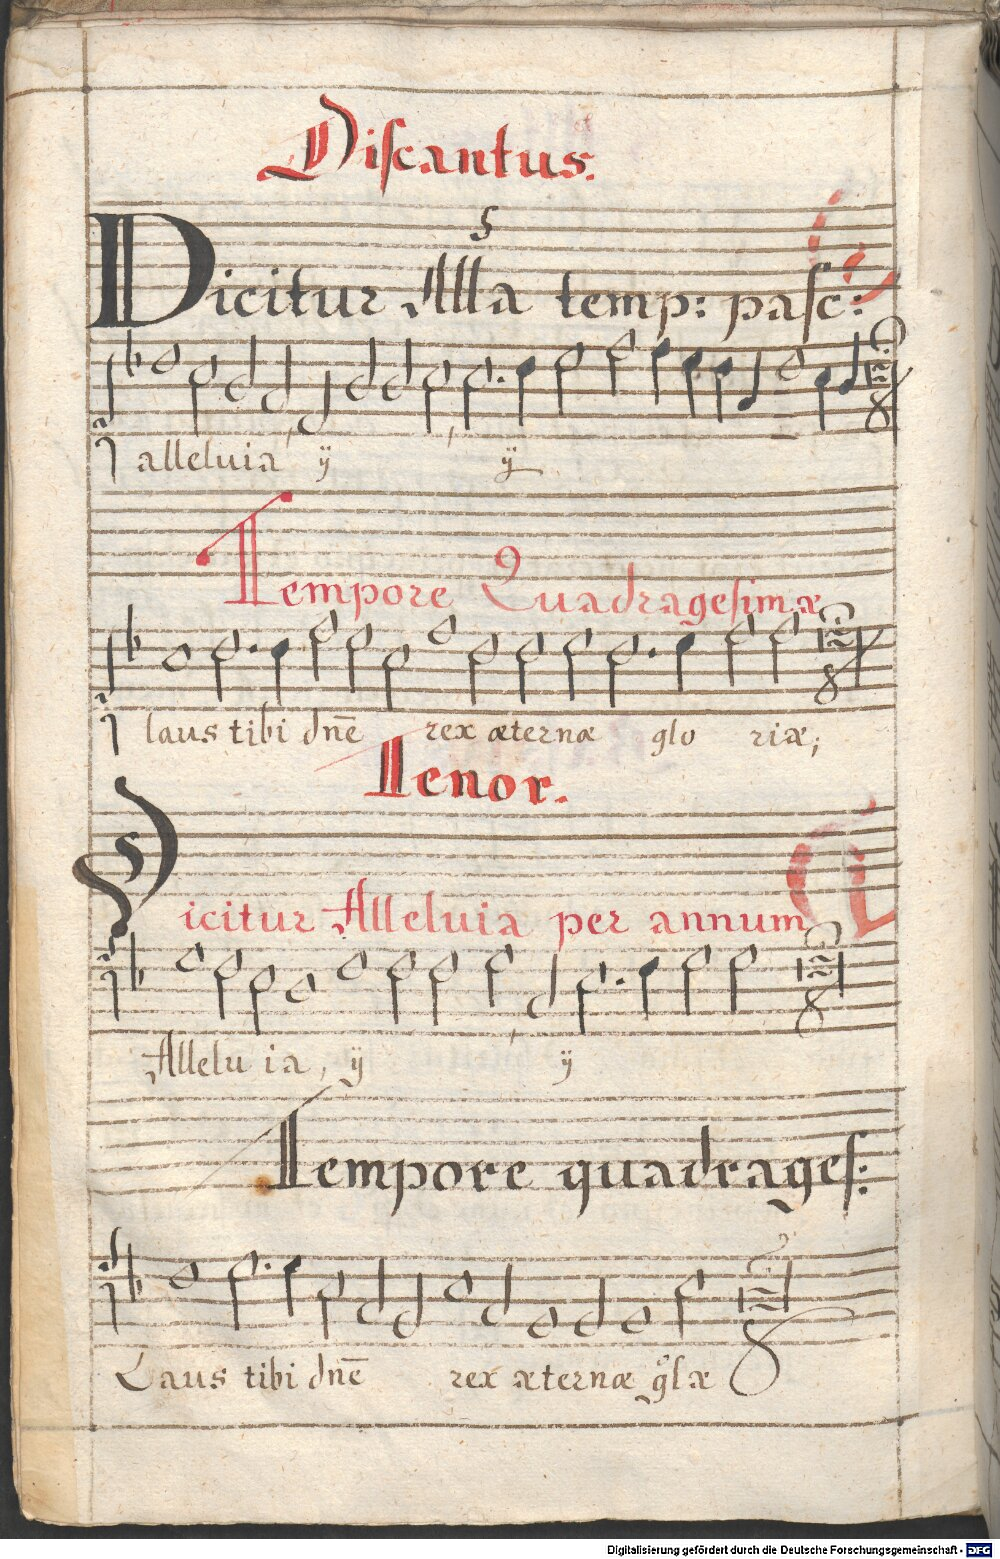 Discantus.
5
Dicitur Alla temp: pasc:
alleluia ÿ ÿ
Tempore Quadragesimæ
laus tibi dnē rex æternæ glo riæ;
Tenor.
Dicitur Alleluia per annum
Allelu ia, ÿ ÿ
Tempore quadrages:
Laus tibi dnē rex æternæ glæ
Digitalisierung gefördert durch die Deutsche Forschungsgemeinschaft - DFG